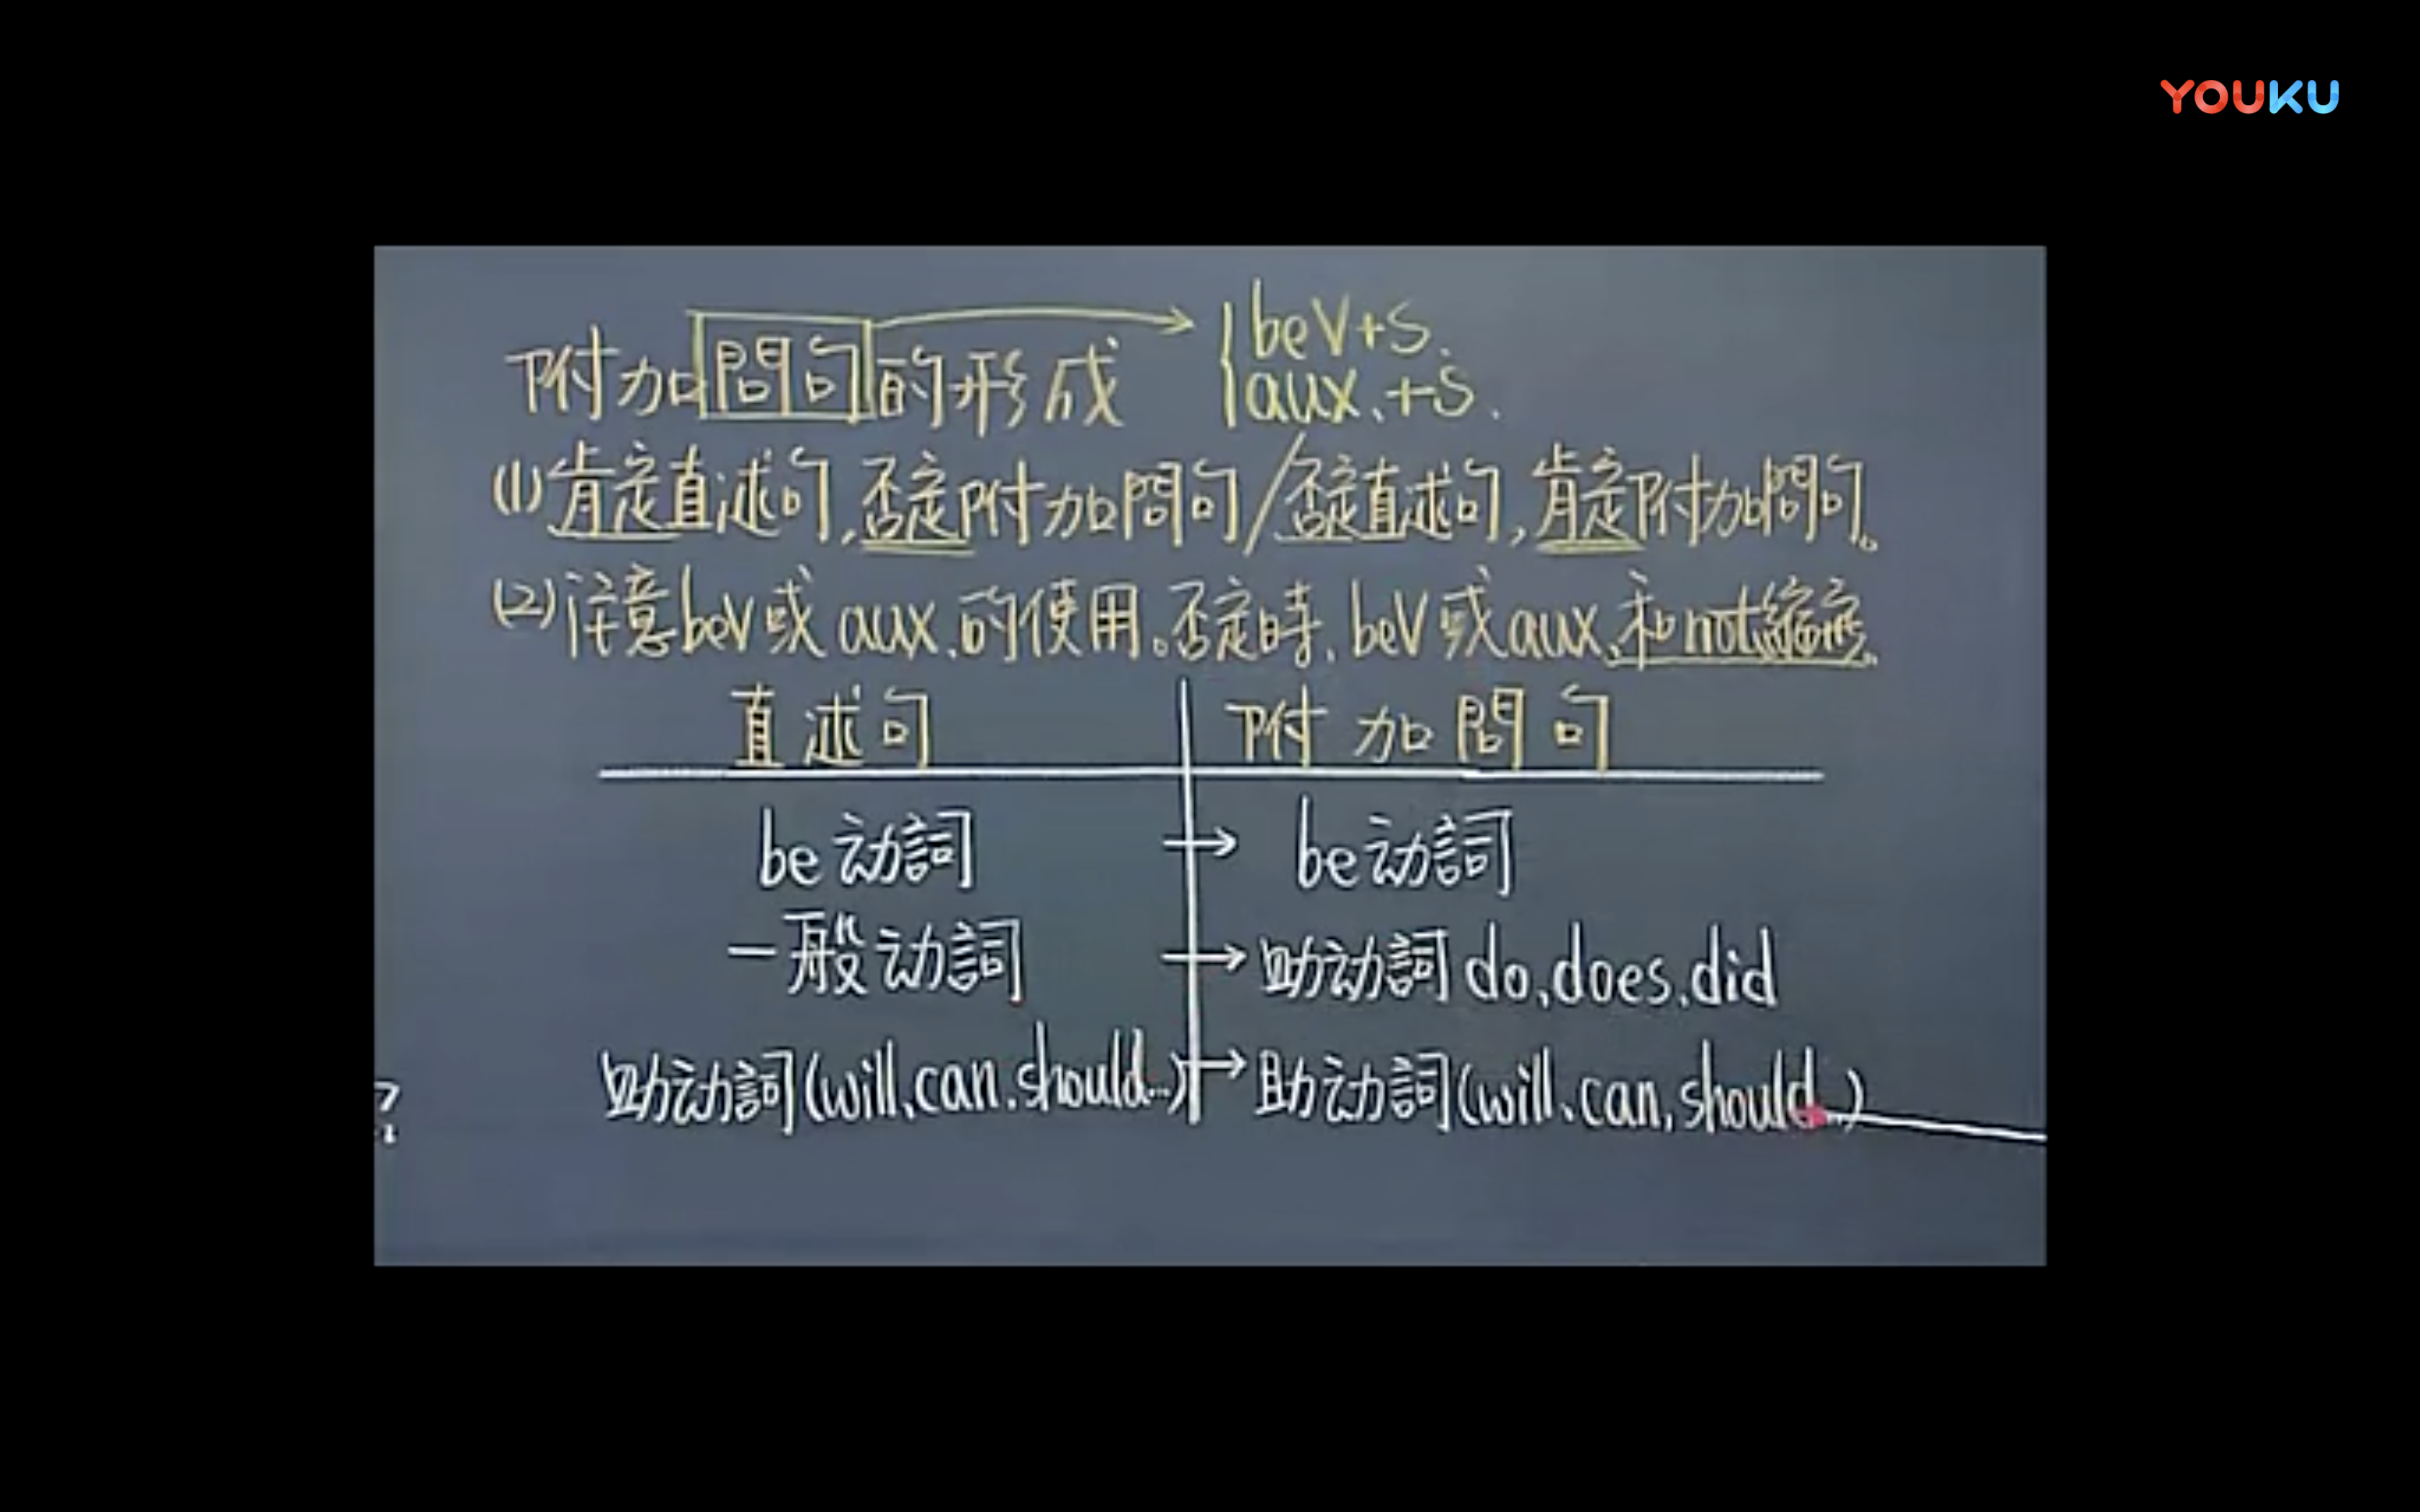 YOUKU
附加問句的形成
beV+S.
aux.+S.
(1)肯定直述句,否定附加問句/否定直述句,肯定附加問句。
(2)注意beV或aux.的使用。否定時,beV或aux.和not縮寫。
直述句 附加問句
be动詞 → be动詞
一般动詞 → 助动詞do,does,did
助动詞(will,can,should...) → 助动詞(will,can,should...)